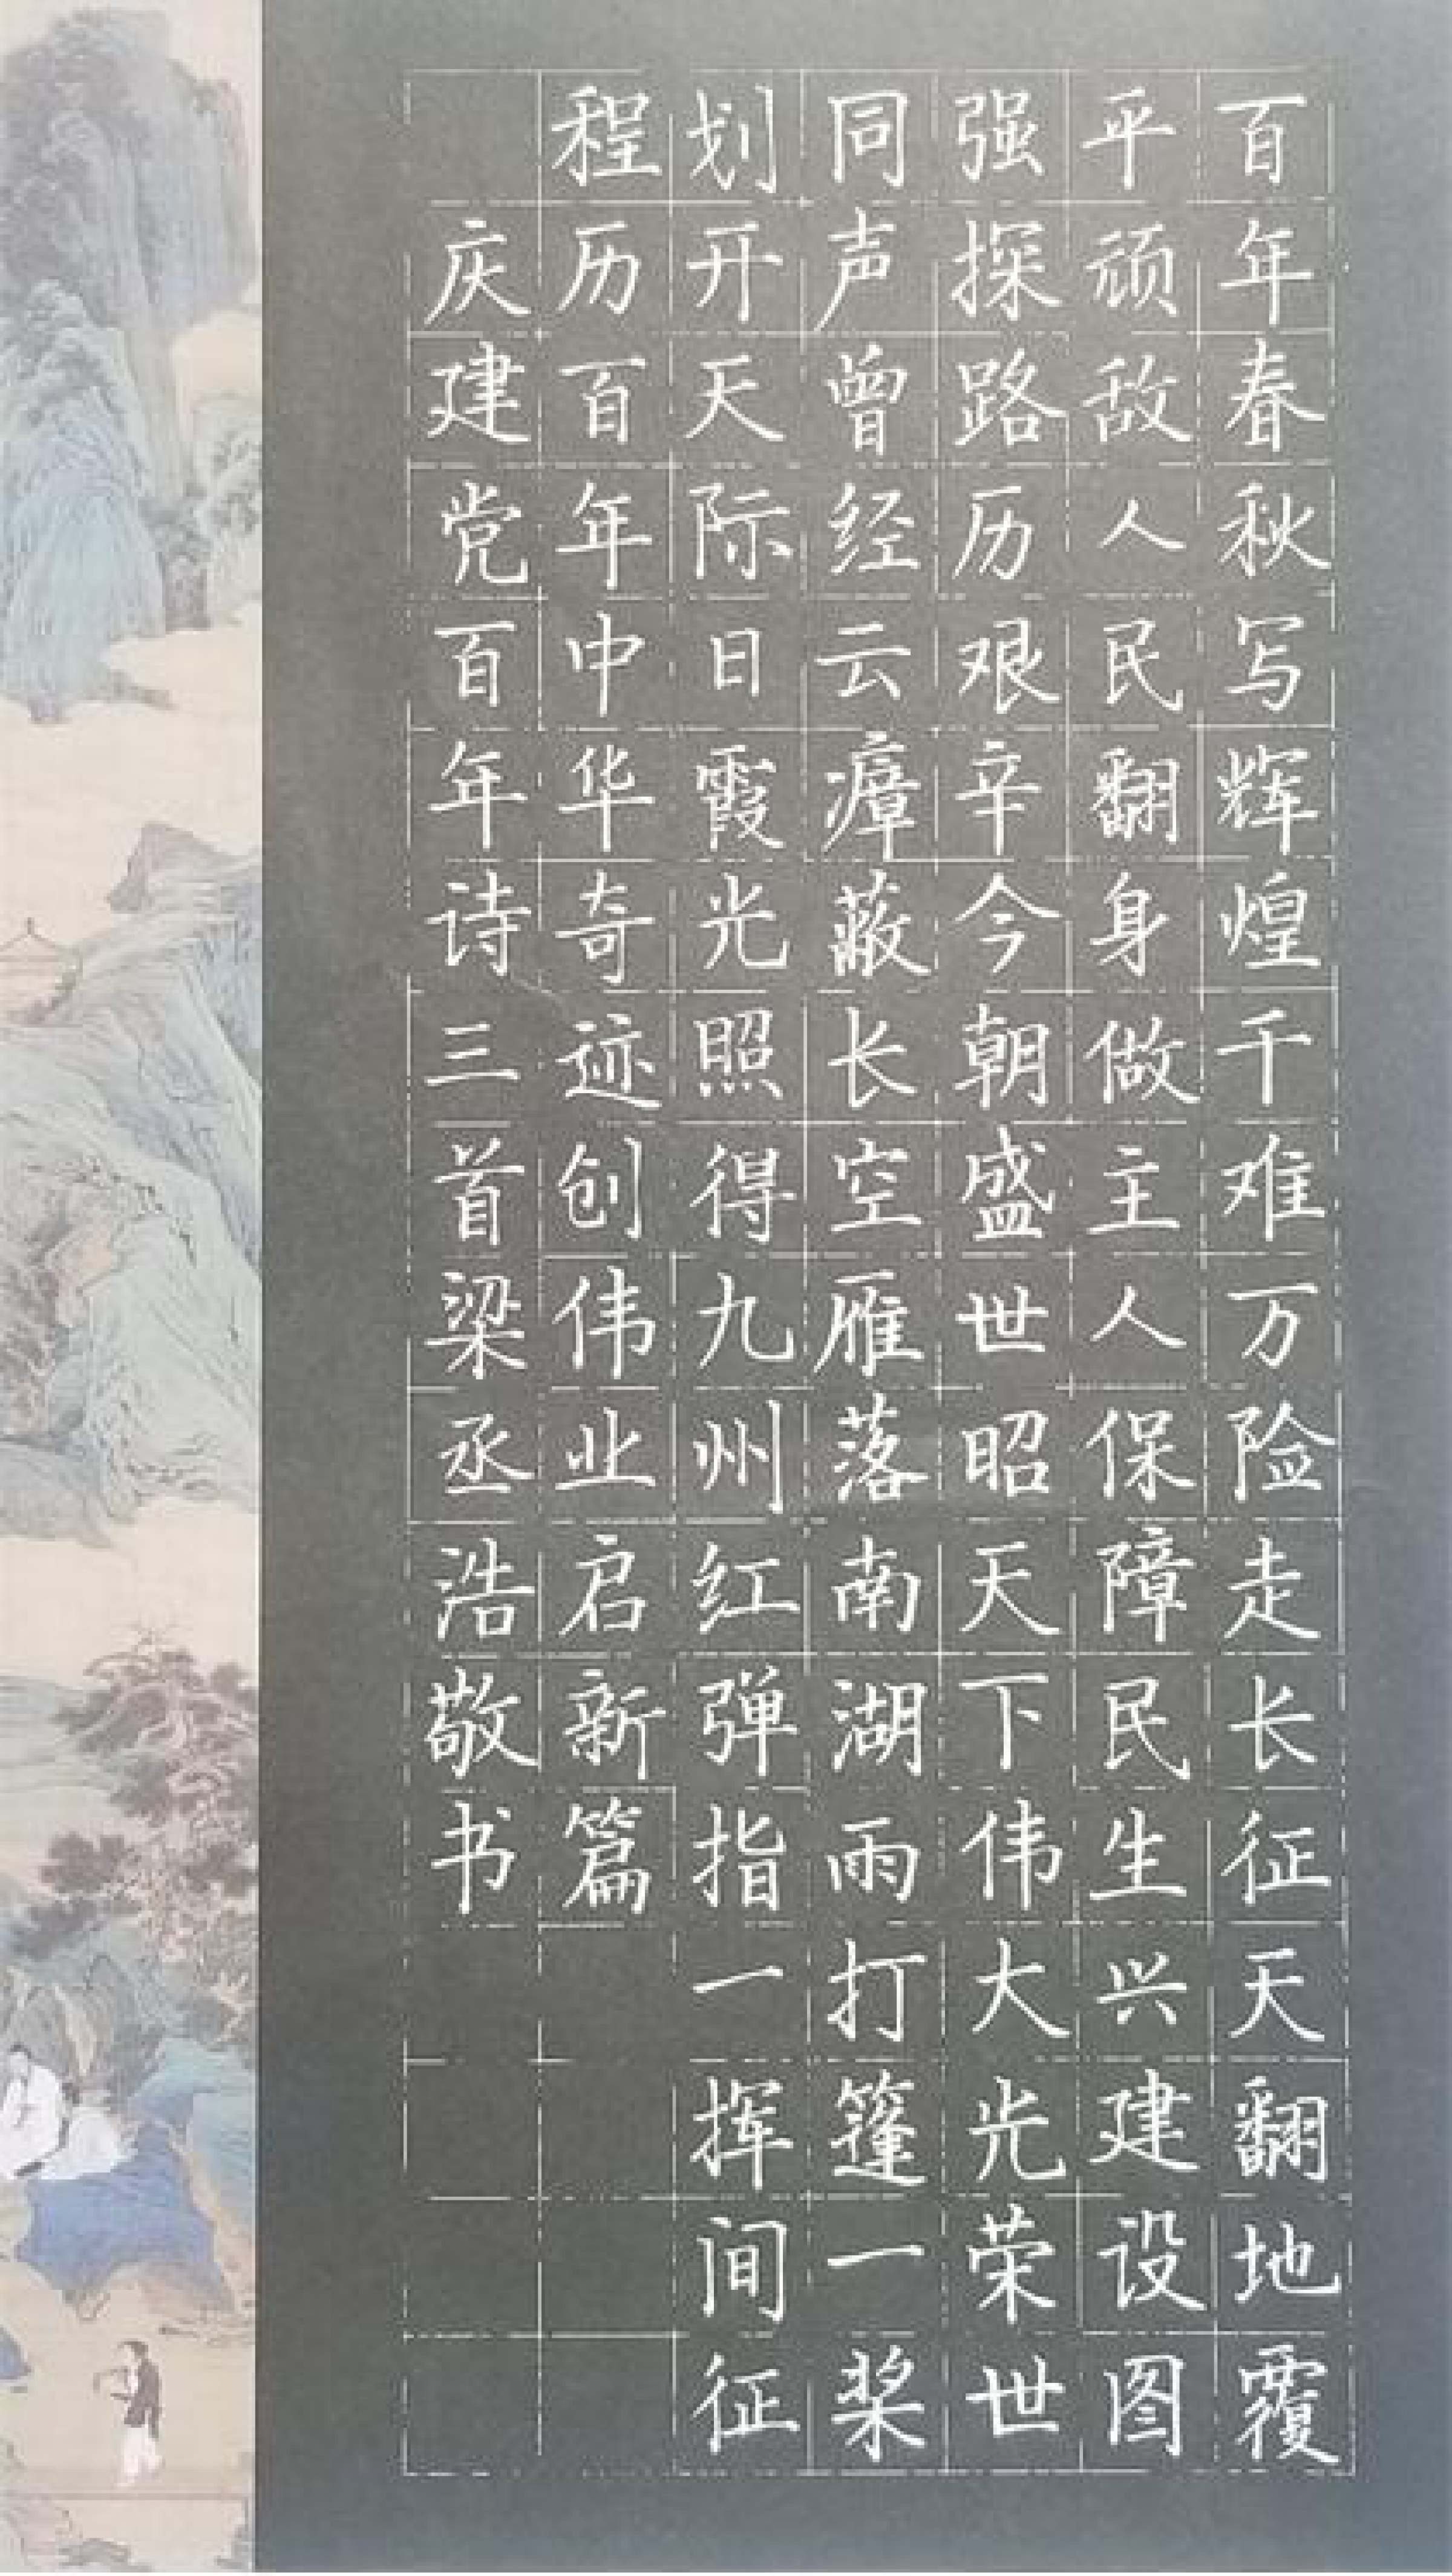 百年春秋写辉煌千难万险走长征天翻地覆
平顽敌人民翻身做主人保障民生兴建设图
强探路历艰辛今朝盛世昭天下伟大光荣世
同声曾经云瘴蔽长空雁落南湖雨打篷一桨
划开天际日霞光照得九州红弹指一挥间征
程历百年中华奇迹创伟业启新篇
庆建党百年诗三首梁丞浩敬书